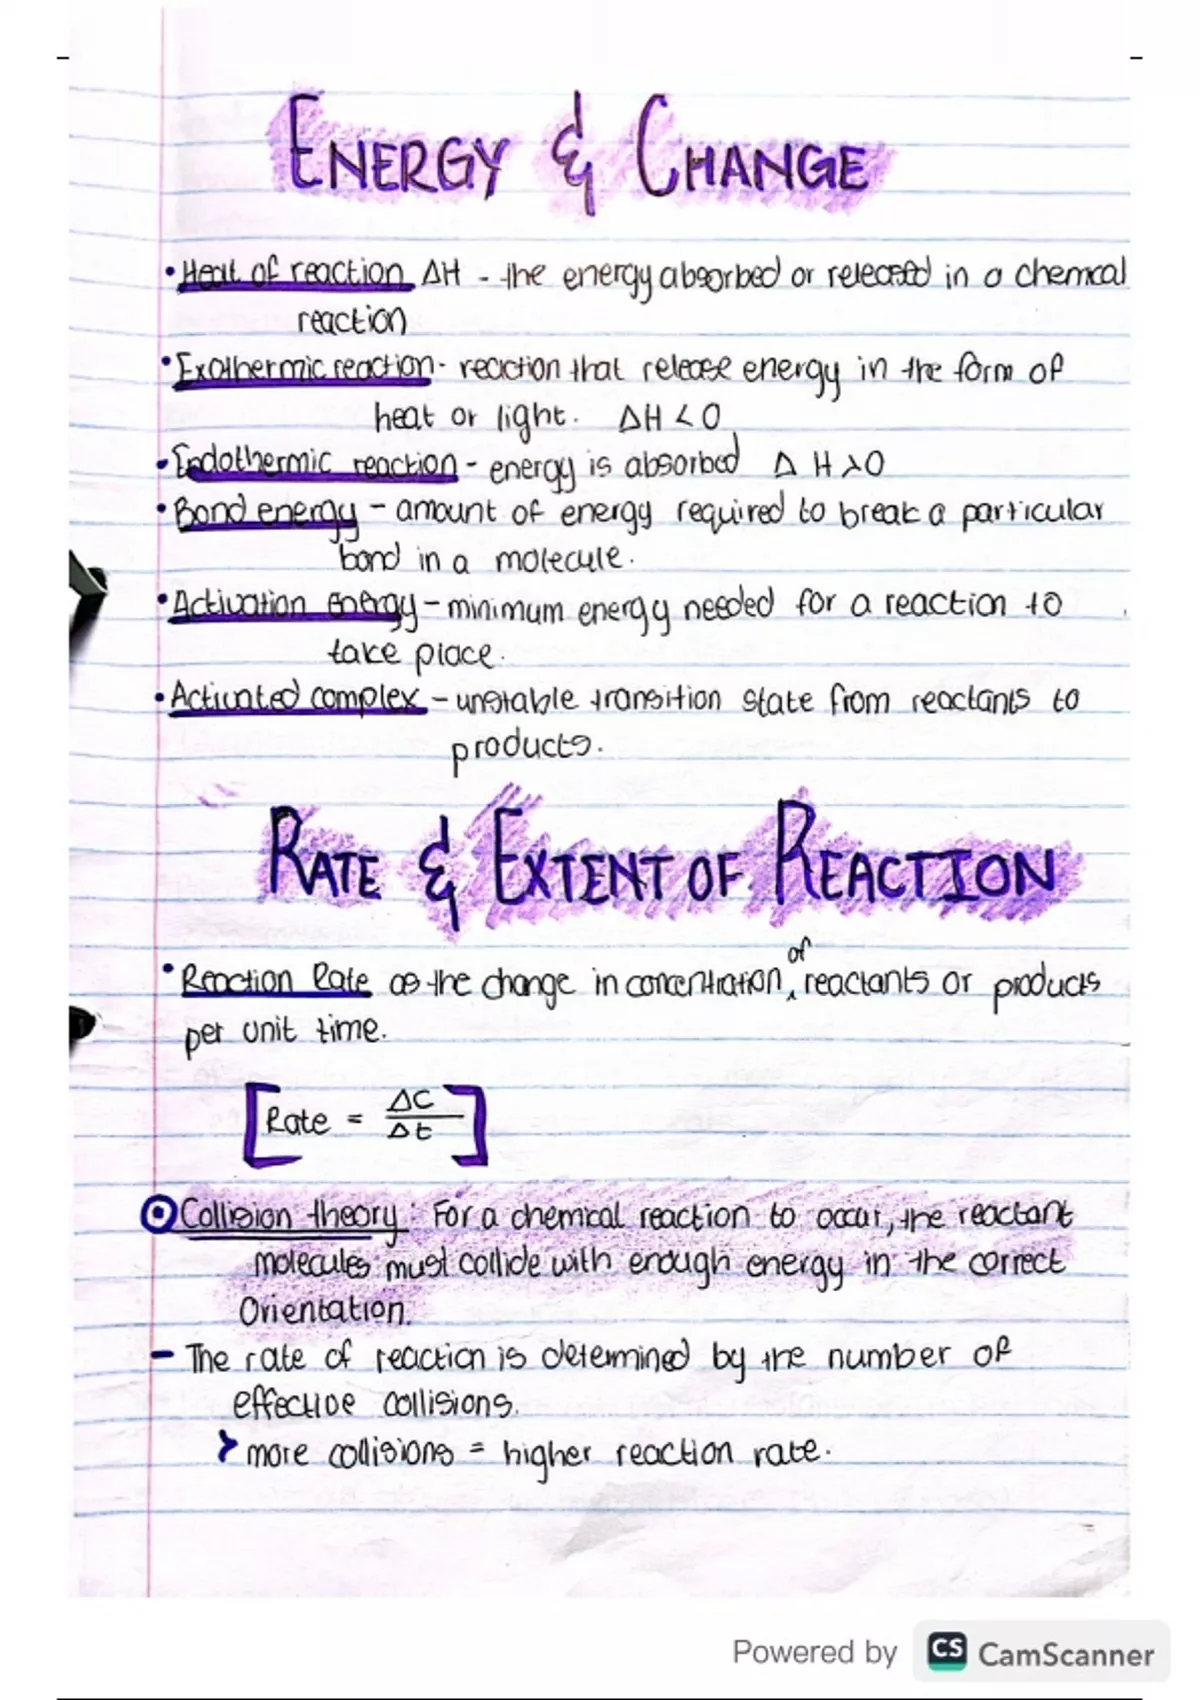 ENERGY & CHANGE
• Heat of reaction ΔH - the energy absorbed or released in a chemical
reaction
• Exothermic reaction - reaction that release energy in the form of
heat or light. ΔH < 0
• Endothermic reaction - energy is absorbed ΔH > 0
• Bond energy - amount of energy required to break a particular
bond in a molecule.
• Activation energy - minimum energy needed for a reaction to
take place.
• Activated complex - unstable transition state from reactants to
products.
RATE & EXTENT OF REACTION
• Reaction Rate as the change in concentration of reactants or products
per unit time.
[Rate = ΔC/Δt]
Collision theory: For a chemical reaction to occur, the reactant
molecules must collide with enough energy in the correct
Orientation.
- The rate of reaction is determined by the number of
effective collisions.
> more collisions = higher reaction rate.
Powered by CS CamScanner